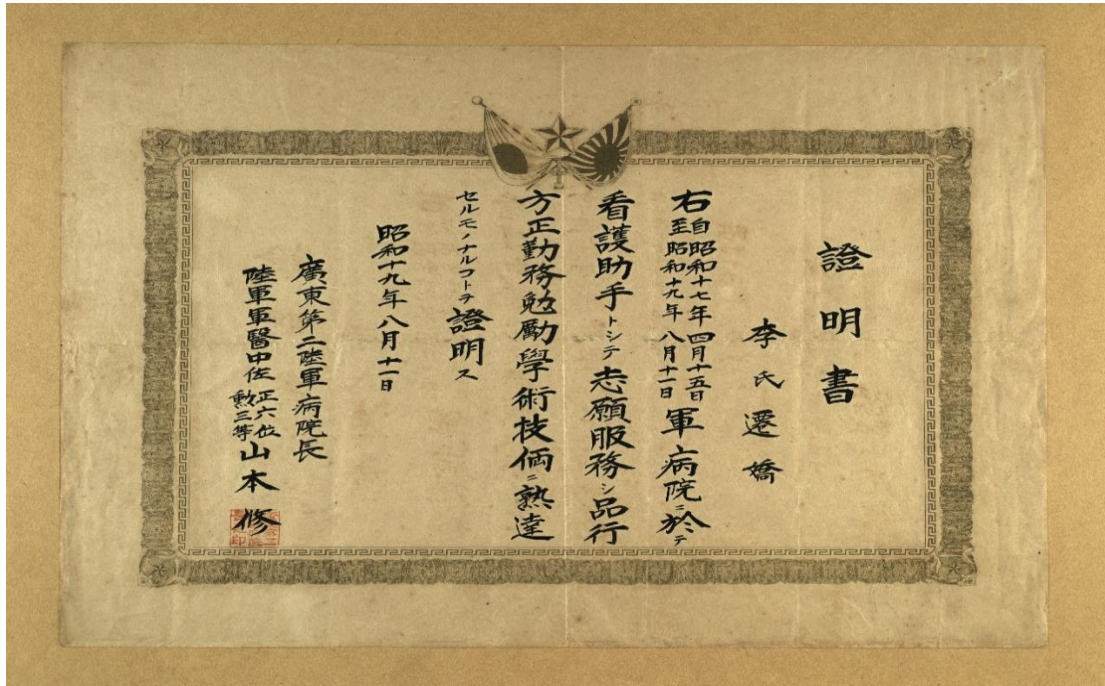 證明書
李氏遷嬌
右自昭和十七年四月十五日至昭和十九年八月十一日軍病院ニ於テ
看護助手トシテ志願服務シ品行
方正勤務勉勵學術技倆ニ熟達
セルモノナルコトヲ證明ス
昭和十九年八月十一日
廣東第二陸軍病院長
陸軍軍醫中佐正六位勲三等山本修